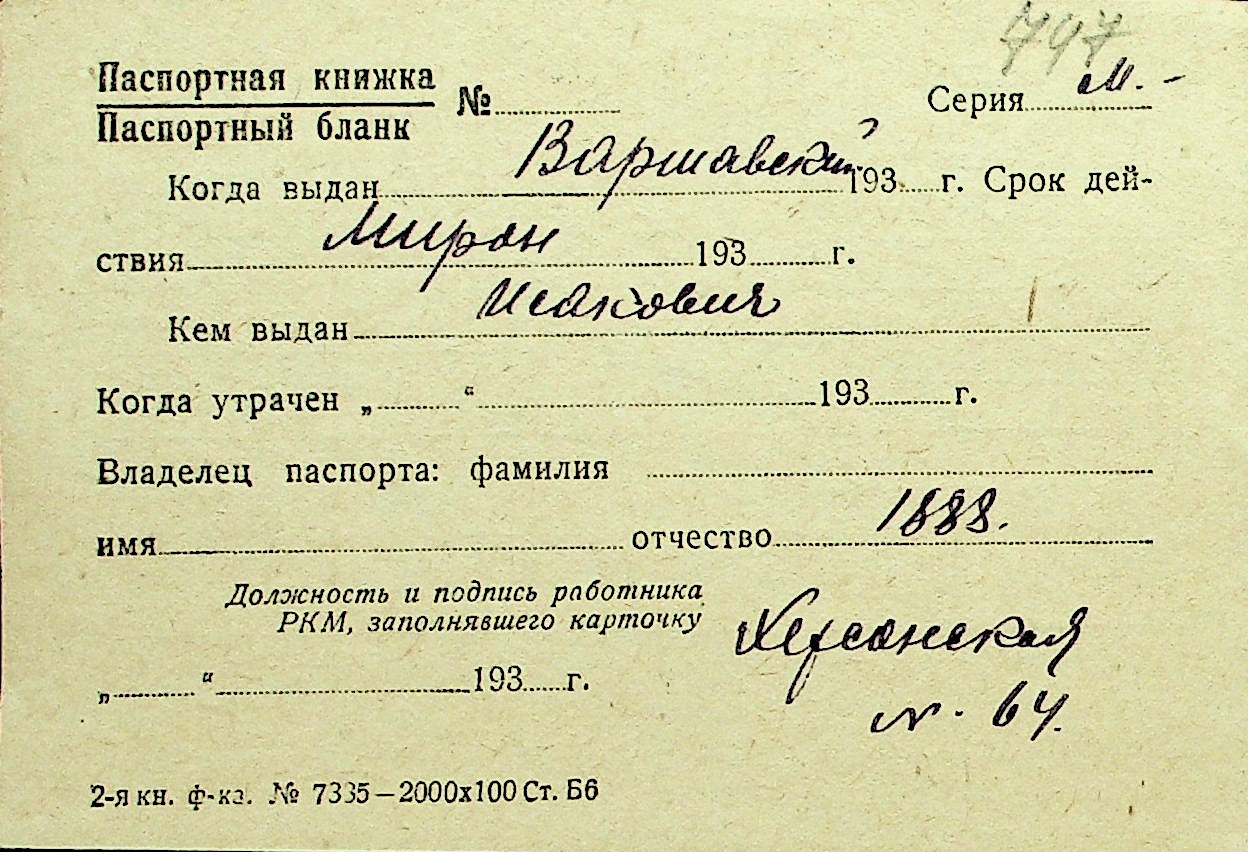 797
Паспортная книжка
Паспортный бланк
№ Серия М. -
Варшавский
Когда выдан 193 г. Срок дей-
Мирон
ствия 193 г.
Исакович
Кем выдан
Когда утрачен „ “ 193 г.
Владелец паспорта: фамилия
имя отчество 1888.
Должность и подпись работника
РКМ, заполнявшего карточку
Херсонская
„ “ 193 г.
N. 64.
2-я кн. ф-ка. № 7335—2000x100 Ст. Б6